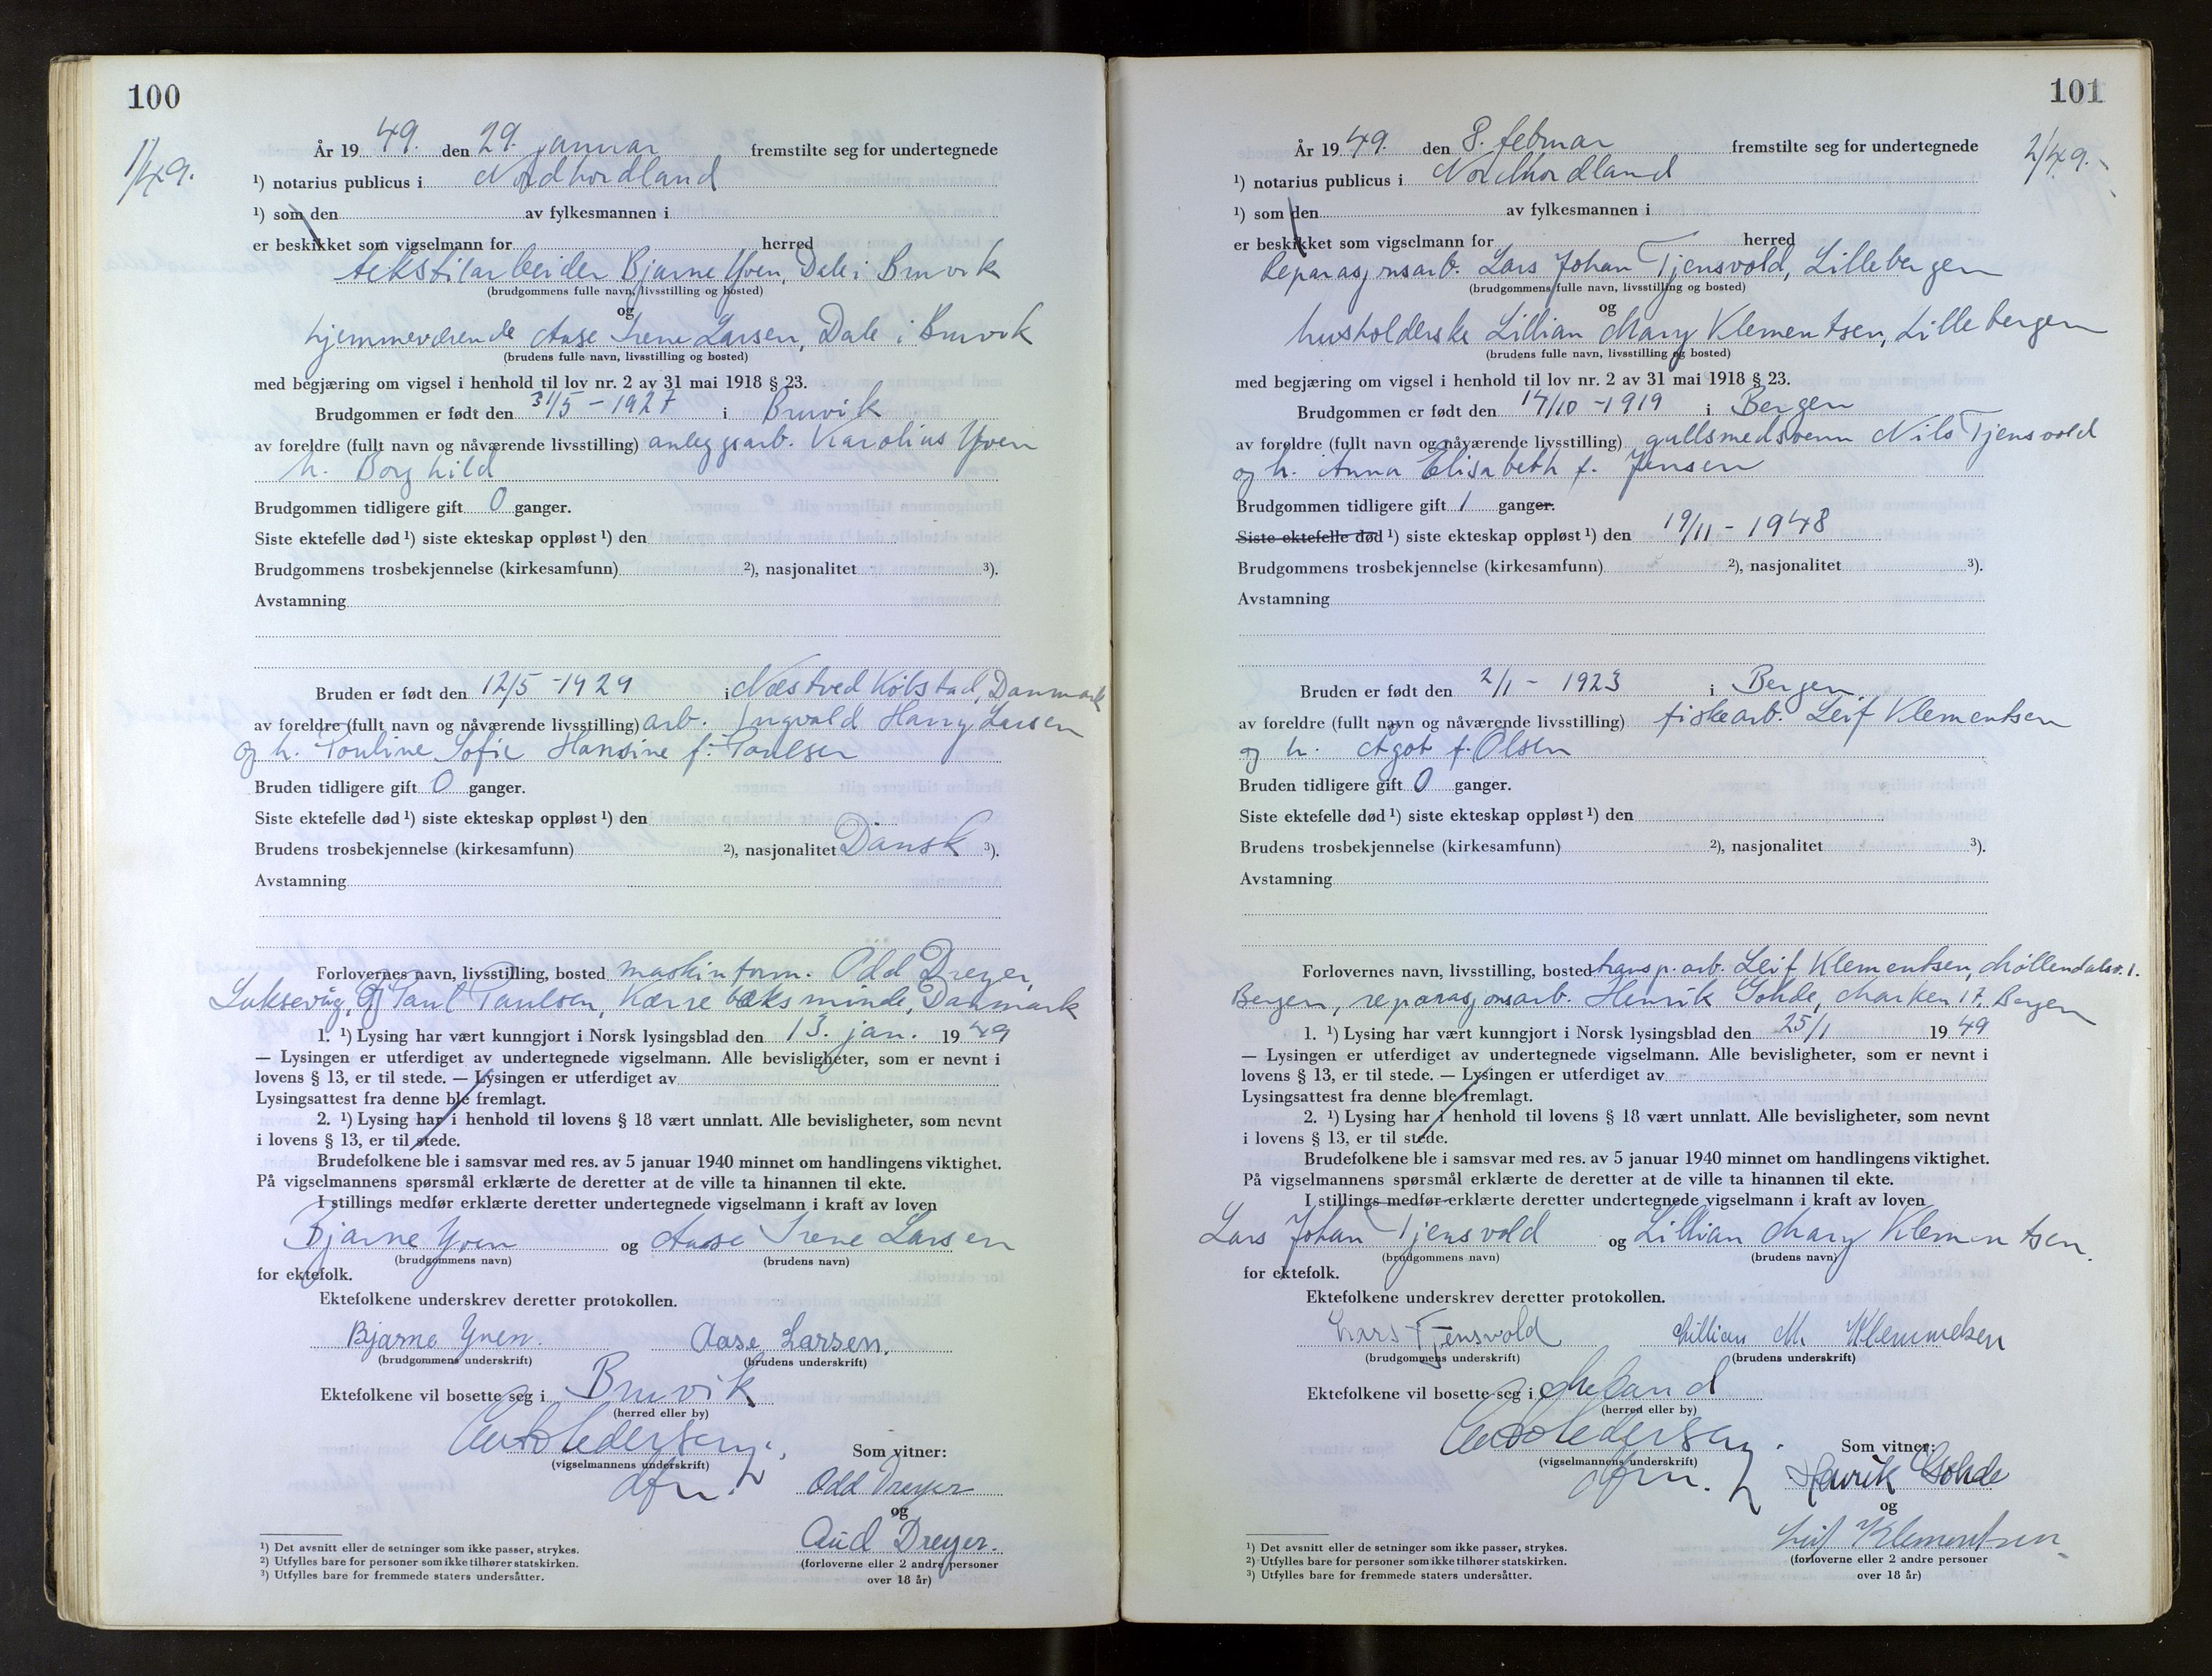 100
1/49.
År 19 49. den 29. januar fremstilte seg for undertegnede
¹) notarius publicus i Nordhordland
¹) som den av fylkesmannen i
er beskikket som vigselmann for herred
tekstilarbeider Bjarne Yven, Dale i Bruvik
(brudgommens fulle navn, livsstilling og bosted)
og
hjemmeværende Aase Irene Larsen, Dale i Bruvik
(brudens fulle navn, livsstilling og bosted)
med begjæring om vigsel i henhold til lov nr. 2 av 31 mai 1918 § 23.
Brudgommen er født den 31/5 - 1927 i Bruvik
av foreldre (fullt navn og nåværende livsstilling) anleggsarb. Karolius Yven
h. Borghild
Brudgommen tidligere gift 0 ganger.
Siste ektefelle død ¹) siste ekteskap oppløst ¹) den
Brudgommens trosbekjennelse (kirkesamfunn) ²), nasjonalitet ³).
Avstamning
Bruden er født den 12/5 - 1929 i Næstved Købstad, Danmark
av foreldre (fullt navn og nåværende livsstilling) arb. Ingvald Harry Larsen
og h. Pouline Sofie Hansine f. Poulsen
Bruden tidligere gift 0 ganger.
Siste ektefelle død ¹) siste ekteskap oppløst ¹) den
Brudens trosbekjennelse (kirkesamfunn) ²), nasjonalitet Dansk ³).
Avstamning
Forlovernes navn, livsstilling, bosted maskinform. Odd Dreyer,
Laksevåg, og Paul Paulsen, Karrebæksminde, Danmark
1. ¹) Lysing har vært kunngjort i Norsk lysingsblad den 13. jan. 19 49
— Lysingen er utferdiget av undertegnede vigselmann. Alle bevisligheter, som er nevnt i
lovens § 13, er til stede. — Lysingen er utferdiget av
Lysingsattest fra denne ble fremlagt.
2. ¹) Lysing har i henhold til lovens § 18 vært unnlatt. Alle bevisligheter, som nevnt
i lovens § 13, er til stede.
Brudefolkene ble i samsvar med res. av 5 januar 1940 minnet om handlingens viktighet.
På vigselmannens spørsmål erklærte de deretter at de ville ta hinannen til ekte.
I stillings medfør erklærte deretter undertegnede vigselmann i kraft av loven
Bjarne Yven og Aase Irene Larsen
(brudgommens navn) (brudens navn)
for ektefolk.
Ektefolkene underskrev deretter protokollen.
Bjarne Yven. Aase Larsen.
(brudgommens underskrift) (brudens underskrift)
Ektefolkene vil bosette seg i Bruvik
(herred eller by)
Som vitner:
(vigselmannens underskrift)
dfm.
Odd Dreyer
og
Aud Dreyer.
(forloverne eller 2 andre personer
over 18 år)
¹) Det avsnitt eller de setninger som ikke passer, strykes.
²) Utfylles bare for personer som ikke tilhører statskirken.
³) Utfylles bare for fremmede staters undersåtter.
101
2/49.
År 19 49. den 8. februar fremstilte seg for undertegnede
¹) notarius publicus i Nordhordland
¹) som den av fylkesmannen i
er beskikket som vigselmann for herred
Reparasjonsarb. Lars Johan Tjensvold, Lillebergen
(brudgommens fulle navn, livsstilling og bosted)
og
husholderske Lillian Mary Klementsen, Lillebergen
(brudens fulle navn, livsstilling og bosted)
med begjæring om vigsel i henhold til lov nr. 2 av 31 mai 1918 § 23.
Brudgommen er født den 17/10 - 1919 i Bergen
av foreldre (fullt navn og nåværende livsstilling) gullsmedsvenn Nils Tjensvold
og h. Anna Elisabeth f. Jensen
Brudgommen tidligere gift 1 ganger.
Siste ektefelle død ¹) siste ekteskap oppløst ¹) den 19/11 - 1948
Brudgommens trosbekjennelse (kirkesamfunn) ²), nasjonalitet ³).
Avstamning
Bruden er født den 2/1 - 1923 i Bergen.
av foreldre (fullt navn og nåværende livsstilling) fiskearb. Leif Klementsen
og h. Ågot f. Olsen
Bruden tidligere gift 0 ganger.
Siste ektefelle død ¹) siste ekteskap oppløst ¹) den
Brudens trosbekjennelse (kirkesamfunn) ²), nasjonalitet ³).
Avstamning
Forlovernes navn, livsstilling, bosted transp. arb. Leif Klementsen, Møllendalsv. 1.
Bergen, reparasjonsarb. Henrik Gohde, Marken 17, Bergen
1. ¹) Lysing har vært kunngjort i Norsk lysingsblad den 25/1 19 49
— Lysingen er utferdiget av undertegnede vigselmann. Alle bevisligheter, som er nevnt i
lovens § 13, er til stede. — Lysingen er utferdiget av
Lysingsattest fra denne ble fremlagt.
2. ¹) Lysing har i henhold til lovens § 18 vært unnlatt. Alle bevisligheter, som nevnt
i lovens § 13, er til stede.
Brudefolkene ble i samsvar med res. av 5 januar 1940 minnet om handlingens viktighet.
På vigselmannens spørsmål erklærte de deretter at de ville ta hinannen til ekte.
I stillings medfør erklærte deretter undertegnede vigselmann i kraft av loven
Lars Johan Tjensvold og Lillian Mary Klementsen.
(brudgommens navn) (brudens navn)
for ektefolk.
Ektefolkene underskrev deretter protokollen.
Lars Tjensvold Lillian M. Klemmetsen
(brudgommens underskrift) (brudens underskrift)
Ektefolkene vil bosette seg i Meland
(herred eller by)
Som vitner:
(vigselmannens underskrift)
dfm.
Henrik Gohde
og
Leif Klementsen
(forloverne eller 2 andre personer
over 18 år)
¹) Det avsnitt eller de setninger som ikke passer, strykes.
²) Utfylles bare for personer som ikke tilhører statskirken.
³) Utfylles bare for fremmede staters undersåtter.